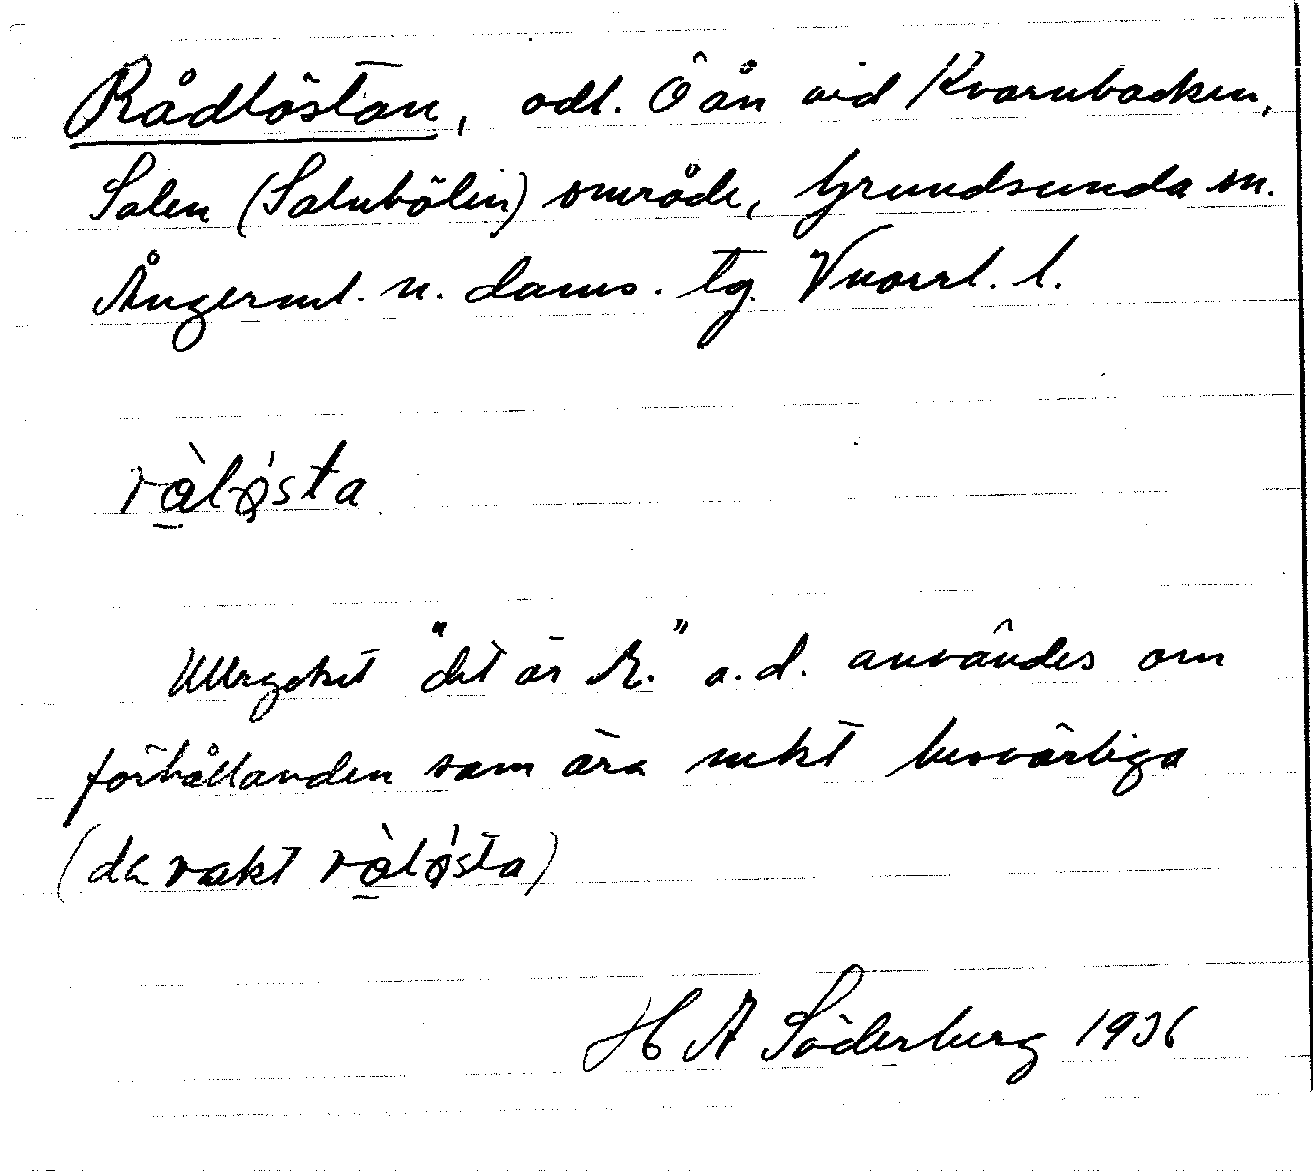 Rådlöstan, odl. Ö ån vid Kvarnbacken,
Salen (Salubölen) område, Grundsunda sn.
Ångerml. n. doms. tg. Vnorrl. l.
rålösta
Uttrycket "det är R." o.d. användes om
förhållanden som äro rakt besvärliga
(dä rakt rålösta)
H A Söderberg 1936